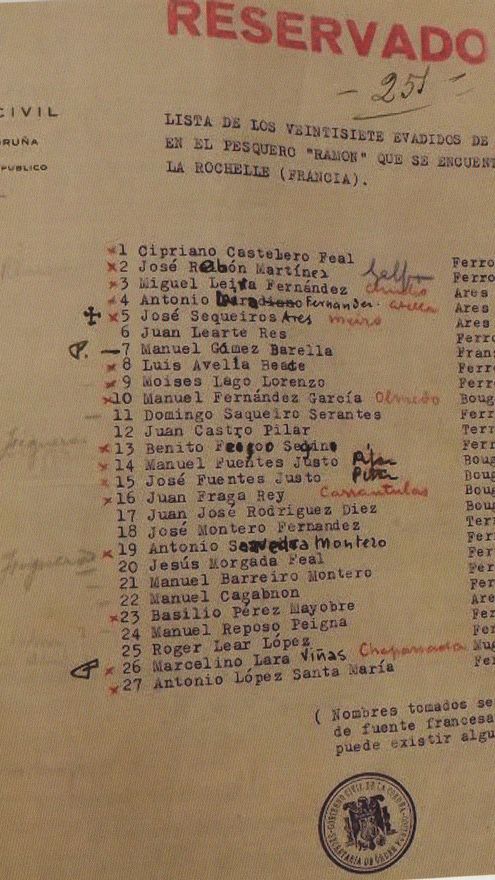 RESERVADO
- 251 -
CIVIL
CORUÑA
PUBLICO
LISTA DE LOS VEINTISIETE EVADIDOS DE
EN EL PESQUERO "RAMON" QUE SE ENCUENT
LA ROCHELLE (FRANCIA).
x1 Cipriano Castelero Feal Ferro
x2 José Rebón Martínez Ferro
x3 Miguel Leira Fernández Ares
x4 Antonio Fernandez Ares
x5 José Sequeiros Ares meiro Ares
6 Juan Learte Res Ferro
P. —7 Manuel Gómez Barella Fran
x8 Luis Avelia Beade Ferr
x9 Moises Lago Lorenzo Ferr
x10 Manuel Fernández García Olmedo Boug
11 Domingo Saqueiro Serantes Ferr
12 Juan Castro Pilar Terr
x13 Benito Ferr
x14 Manuel Fuentes Justo Boug
x15 José Fuentes Justo Boug
x16 Juan Fraga Rey Carrantulas Boug
17 Juan José Rodriguez Diez Bou
18 José Montero Fernandez Ter
x19 Antonio Saavedra Montero Fer
20 Jesús Morgada Feal Fer
21 Manuel Barreiro Montero Fer
22 Manuel Cagabnon Fer
x23 Basilio Pérez Mayobre Are
24 Manuel Reposo Peigna Fer
25 Roger Lear López Fer
P x26 Marcelino Lara Viñas Chaparrada Mug
x27 Antonio López Santa María Fer
( Nombres tomados se
de fuente francesa
puede existir algu
GOBIERNO CIVIL DE LA CORUÑA
SECRETARIA DE ORDEN PUBLICO